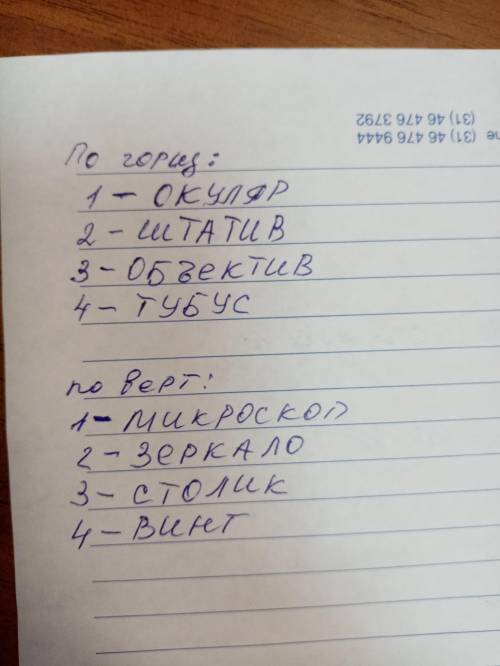 (31) 46 476 3792
ne (31) 46 476 9444
По гориз:
1 - ОКУЛЯР
2 - ШТАТИВ
3 - ОБЪЕКТИВ
4 - ТУБУС
по верт:
1 - МИКРОСКОП
2 - ЗЕРКАЛО
3 - СТОЛИК
4 - ВИНТ